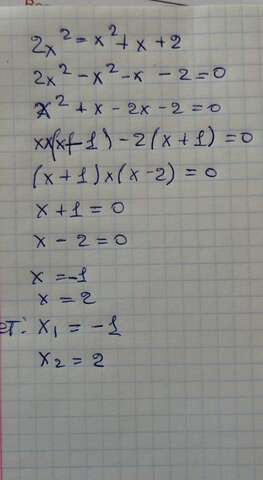 2x² = x² + x + 2
2x² - x² - x - 2 = 0
x² + x - 2x - 2 = 0
x×(x+1) - 2(x+1) = 0
(x+1)×(x-2) = 0
x + 1 = 0
x - 2 = 0
x = -1
x = 2
ет: x₁ = -1
x₂ = 2